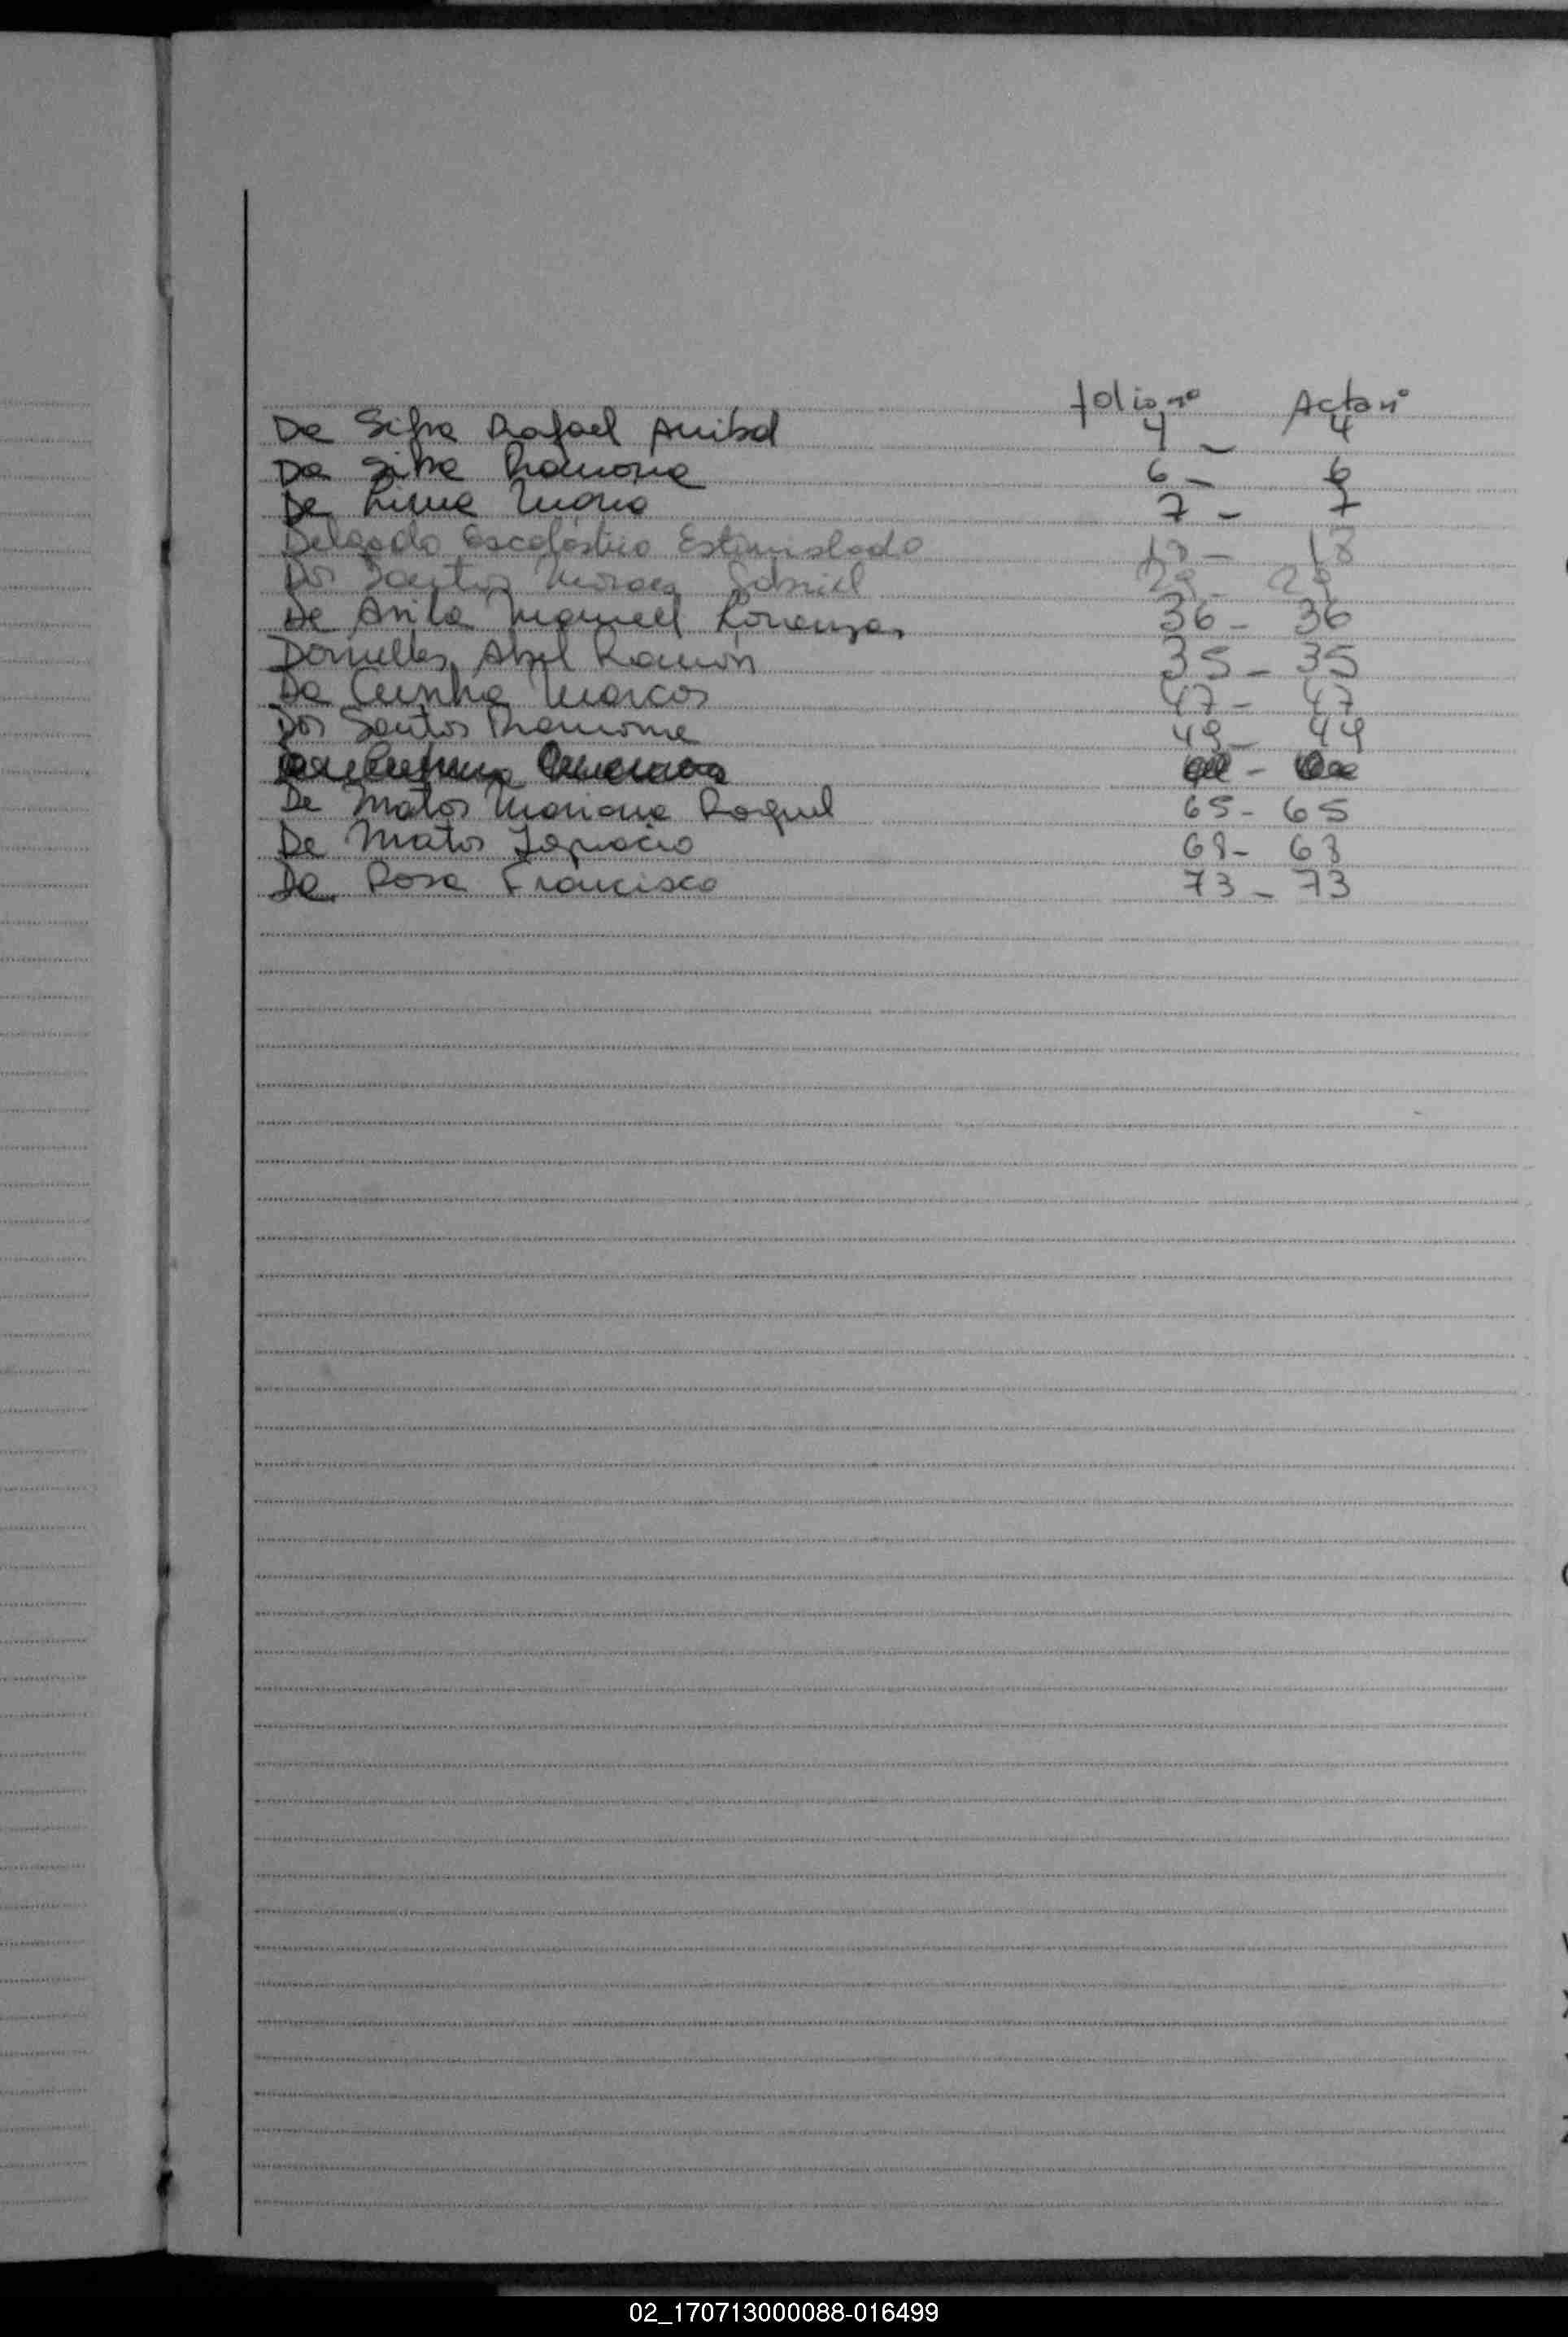 folio nº Acta nº
Da Silva Rafael Anibal 4 - 4
Da Silva Ramona 6 - 6
De Lima Mario 7 - 7
Delgado Escolástico Estanislado 18 - 18
Dos Santos Moraez Gabriel 29 - 29
De Avila Manuel Lorenzo 36 - 36
Dornelles, Abel Ramón 35 - 35
Da Cunha Marcos 47 - 47
Dos Santos Ramona 49 - 49
De Matos Mariana Raquel 65 - 65
De Matos Ignacio 68 - 68
Da Rosa Francisco 73 - 73
02_170713000088-016499